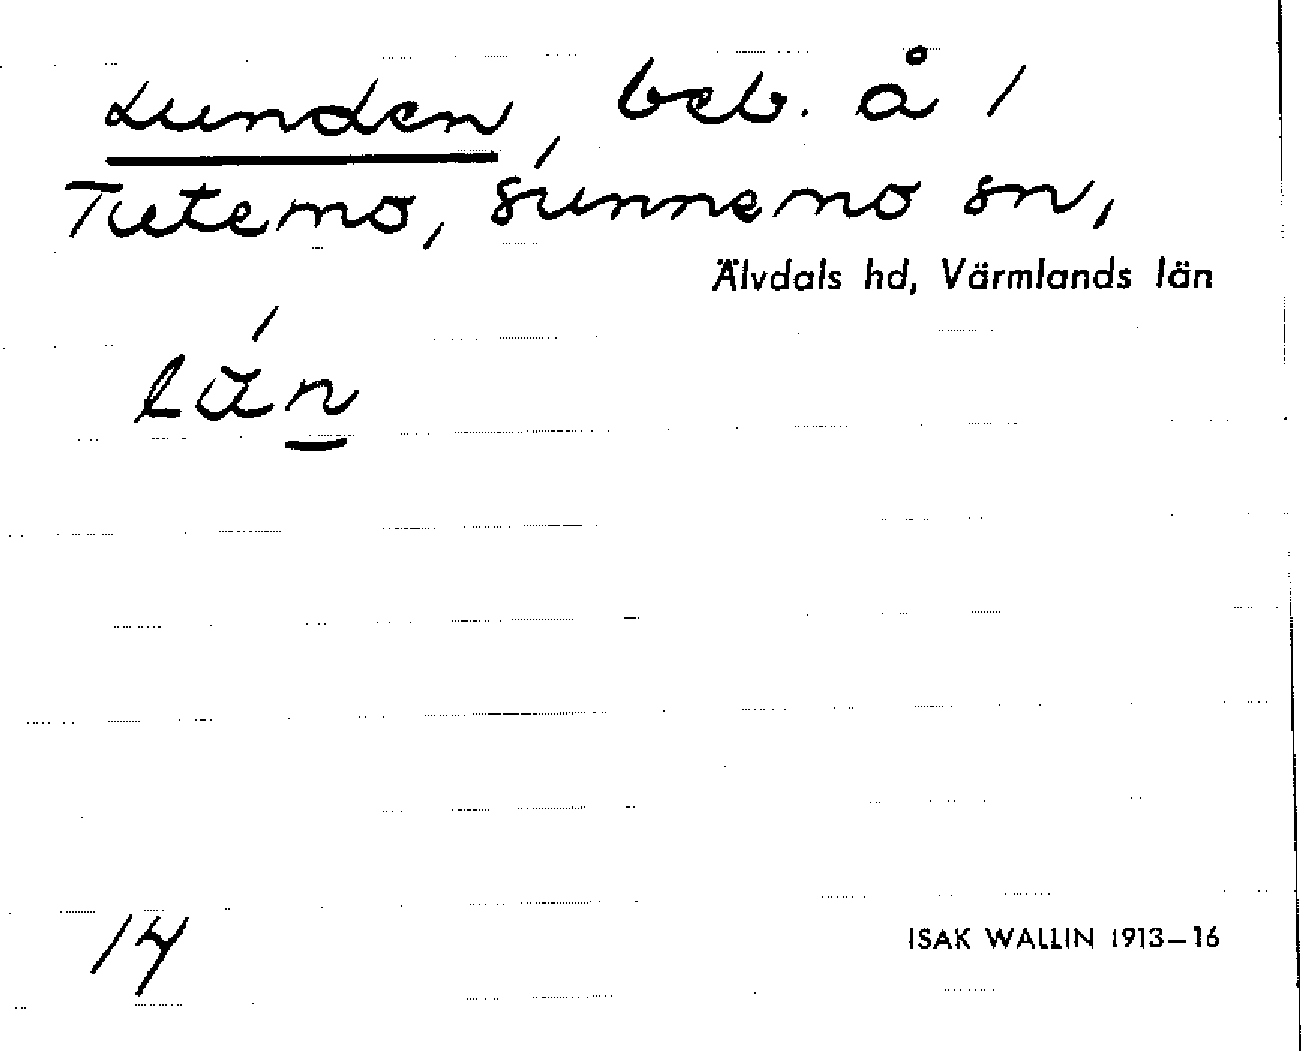 Lunden, beb. å /
Tutemo, Sunnemo sn,
Älvdals hd, Värmlands län
14
ISAK WALLIN 1913–16